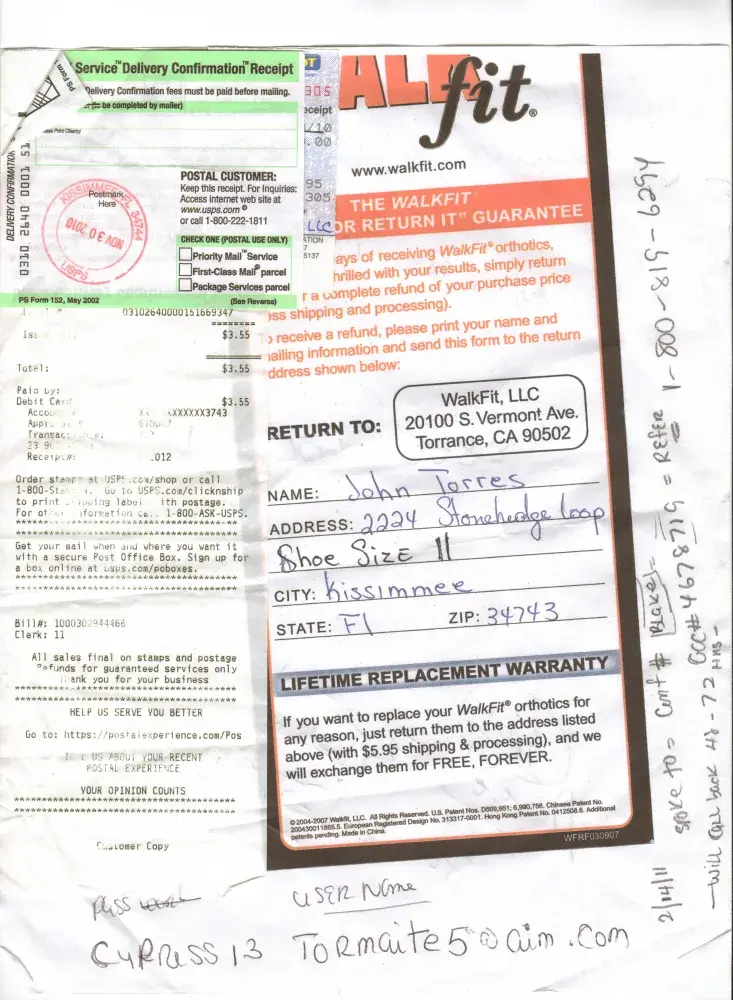 Service™ Delivery Confirmation™ Receipt
Delivery Confirmation fees must be paid before mailing.
(to be completed by mailer)
(Please Print Clearly)
PS Form
DELIVERY CONFIRMATION
0310 2640 0001 51
Postmark
Here
KISSIMMEE FL 34744
NOV 30 2010
USPS
POSTAL CUSTOMER:
Keep this receipt. For Inquiries:
Access internet web site at
www.usps.com®
or call 1-800-222-1811
CHECK ONE (POSTAL USE ONLY)
Priority Mail™ Service
First-Class Mail® parcel
Package Services parcel
PS Form 152, May 2002
(See Reverse)
305
ceipt
/10
.00
95
305
LLC
ATION
7
5137
03102640000151669347
========
Iss $3.55
Total: $3.55
Paid by:
Debit Card $3.55
Account XXXXXXX3743
Receipt#: .012
Order stamps at USPS.com/shop or call
1-800-Stamp Go to USPS.com/clicknship
to print shipping label with postage.
For other information call 1-800-ASK-USPS.
Get your mail when and where you want it
with a secure Post Office Box. Sign up for
a box online at usps.com/poboxes.
Bill#: 1000302944466
Clerk: 11
All sales final on stamps and postage
Refunds for guaranteed services only
Thank you for your business
HELP US SERVE YOU BETTER
Go to: https://postalexperience.com/Pos
TELL US ABOUT YOUR RECENT
POSTAL EXPERIENCE
YOUR OPINION COUNTS
Customer Copy
WALKfit®
www.walkfit.com
THE WALKFIT®
OR RETURN IT" GUARANTEE
ays of receiving WalkFit® orthotics,
hrilled with your results, simply return
r a complete refund of your purchase price
ess shipping and processing).
o receive a refund, please print your name and
mailing information and send this form to the return
ddress shown below:
RETURN TO:
WalkFit, LLC
20100 S. Vermont Ave.
Torrance, CA 90502
NAME: John Torres
ADDRESS: 2224 Stonehedge loop
Shoe SIZE 11
CITY: Kissimmee
STATE: Fl ZIP: 34743
LIFETIME REPLACEMENT WARRANTY
If you want to replace your WalkFit® orthotics for
any reason, just return them to the address listed
above (with $5.95 shipping & processing), and we
will exchange them for FREE, FOREVER.
©2004-2007 Walkfit, LLC. All Rights Reserved. U.S. Patent Nos. D509,951; 6,990,756. Chinese Patent No.
200430011865.5. European Registered Design No. 313317-0001. Hong Kong Patent No. 0412508.6. Additional
patents pending. Made in China.
WFRF030907
2/14/11 SPOKE TO = Comf # Blake = CCC# 4678719 = REFER 1-800-518-6254
- Will call back 48-72 HRS -
PASS
USER NAME
CYPRESS 13 TORMAITE5@aim.com